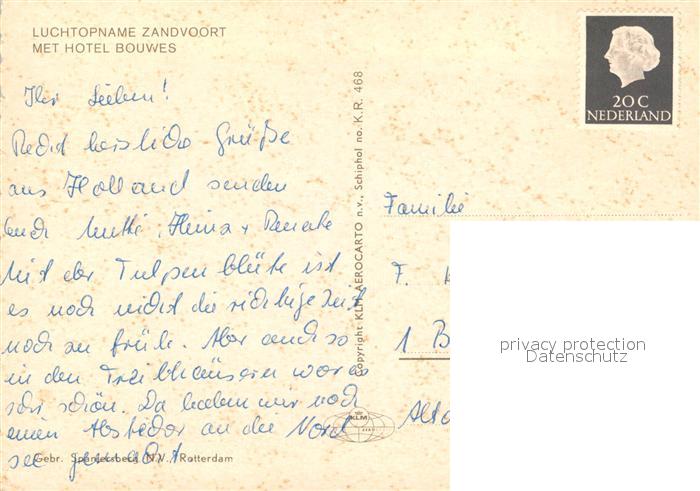 LUCHTOPNAME ZANDVOORT
MET HOTEL BOUWES
Ihr Lieben!
Recht herzliche Grüße
aus Holland senden
Euch Mutti, Heinz + Renate
Mit der Tulpenblüte ist
es noch nicht die richtige Zeit
noch zu früh. Aber auch so
in den Treibhäusern war es
sehr schön. Da haben wir noch
einen Abstecher an die Nord
see gemacht.
Gebr. Spanjersberg N.V., Rotterdam
copyright KLM AEROCARTO n.v., Schiphol no. K.R. 468
KLM
20 C
NEDERLAND
Familie
F.
1 B
privacy protection
Datenschutz